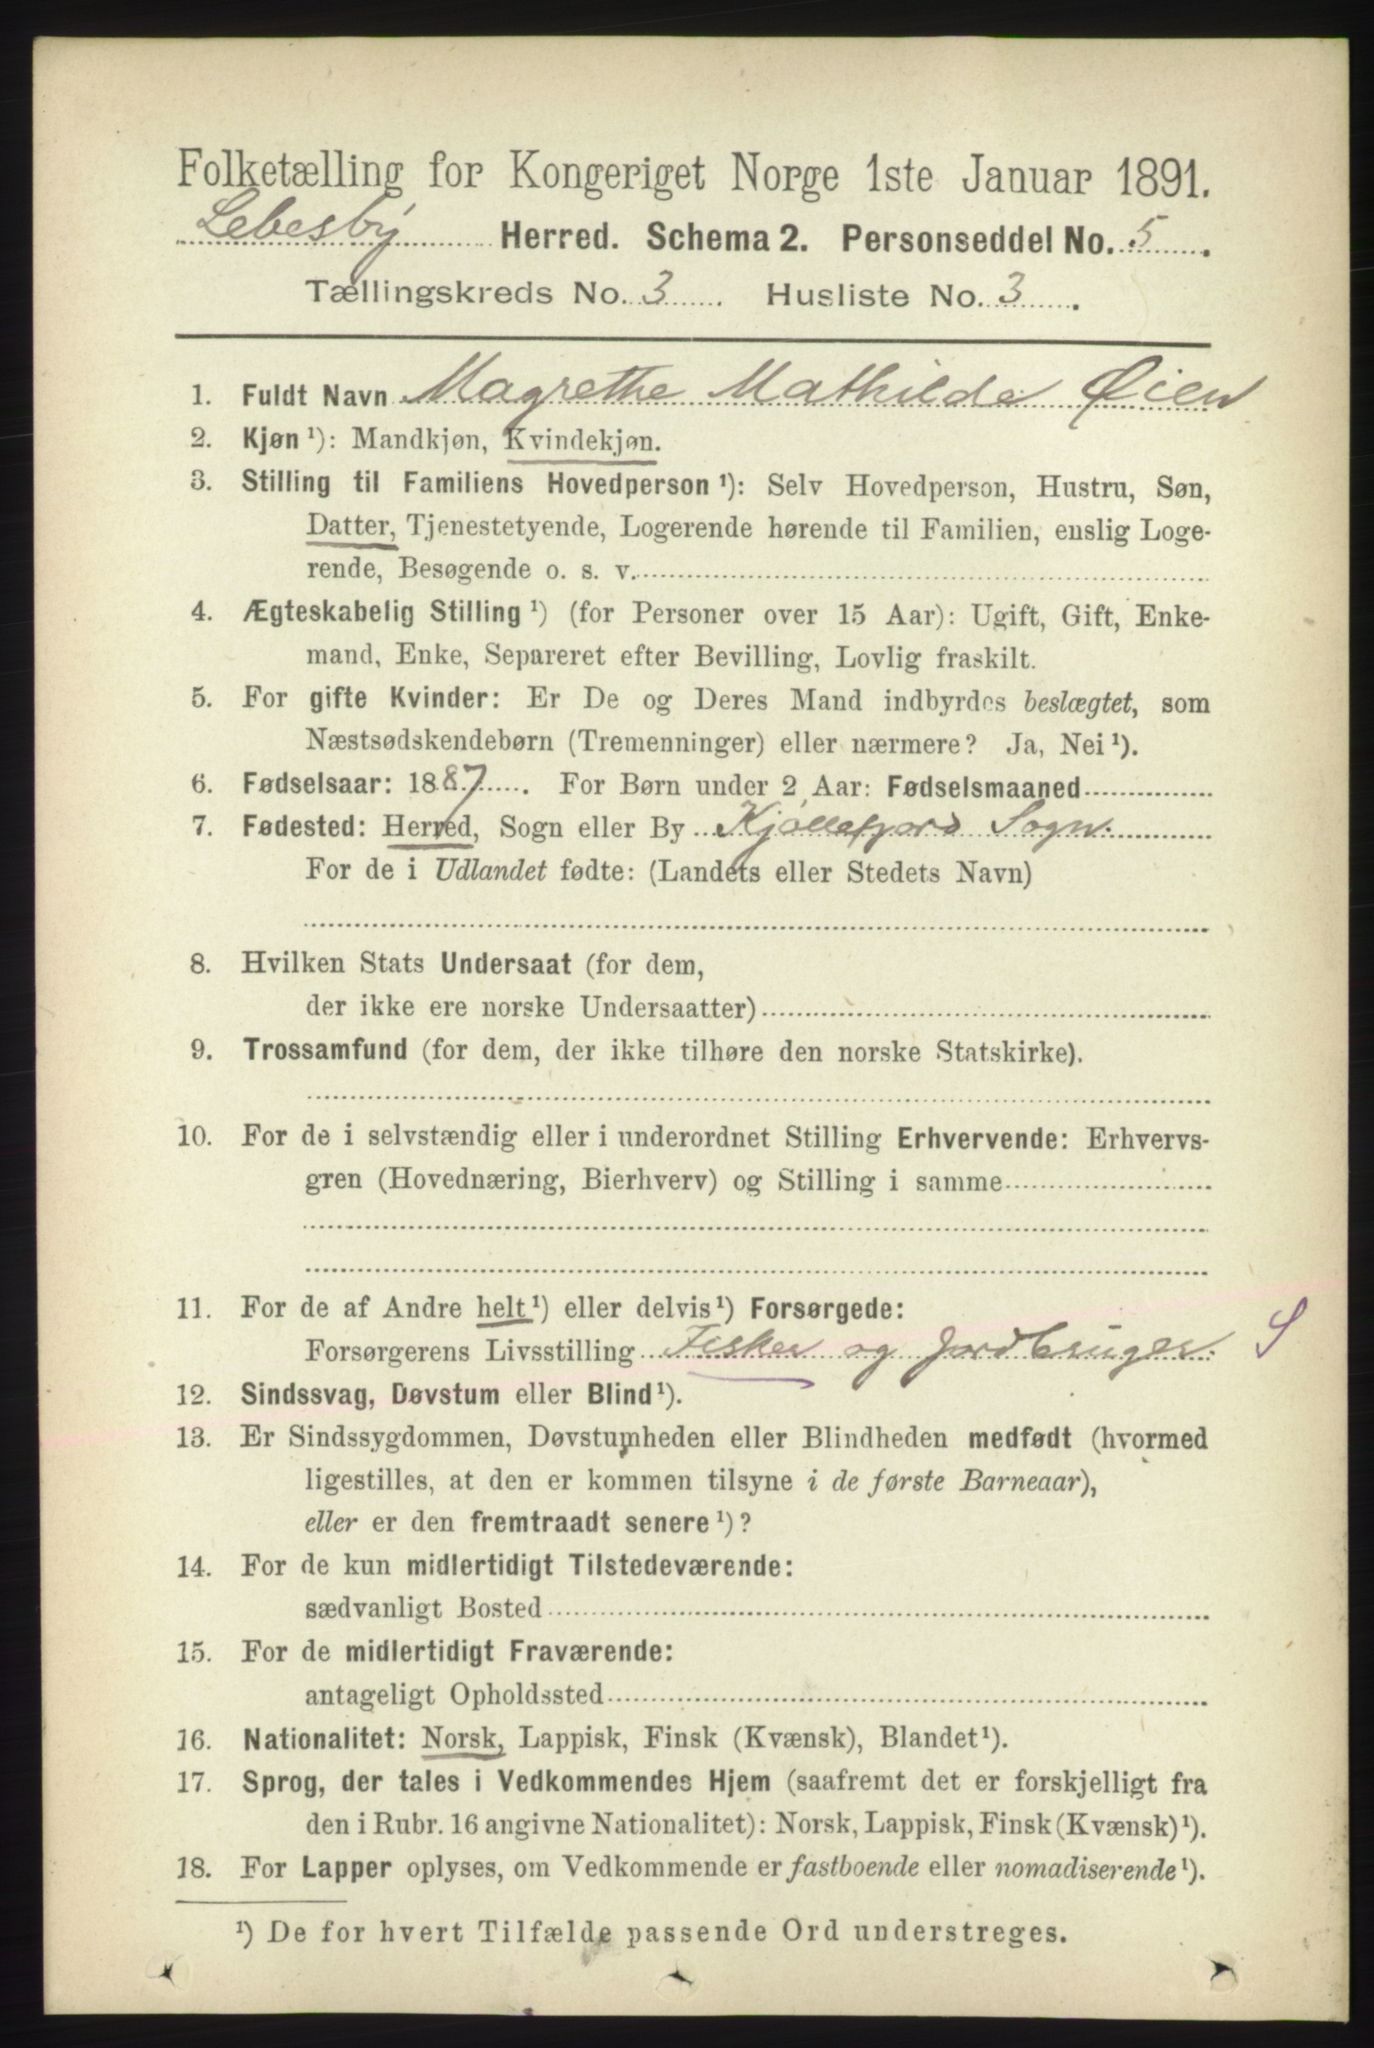 Folketælling for Kongeriget Norge 1ste Januar 1891.
Lebesby Herred. Schema 2. Personseddel No. 5.
Tællingskreds No. 3 Husliste No. 3.
1. Fuldt Navn Magrethe Mathilde Øien
2. Kjøn ¹): Mandkjøn, Kvindekjøn.
3. Stilling til Familiens Hovedperson ¹): Selv Hovedperson, Hustru, Søn,
Datter, Tjenestetyende, Logerende hørende til Familien, enslig Loge-
rende, Besøgende o. s. v.
4. Ægteskabelig Stilling ¹) (for Personer over 15 Aar): Ugift, Gift, Enke-
mand, Enke, Separeret efter Bevilling, Lovlig fraskilt.
5. For gifte Kvinder: Er De og Deres Mand indbyrdes beslægtet, som
Næstsødskendebørn (Tremenninger) eller nærmere? Ja, Nei ¹).
6. Fødselsaar: 1887. For Børn under 2 Aar: Fødselsmaaned
7. Fødested: Herred, Sogn eller By Kjøllefjord Sogn.
For de i Udlandet fødte: (Landets eller Stedets Navn)
8. Hvilken Stats Undersaat (for dem,
der ikke ere norske Undersaatter)
9. Trossamfund (for dem, der ikke tilhøre den norske Statskirke).
10. For de i selvstændig eller i underordnet Stilling Erhvervende: Erhvervs-
gren (Hovednæring, Bierhverv) og Stilling i samme
11. For de af Andre helt ¹) eller delvis ¹) Forsørgede:
Forsørgerens Livsstilling Fisker og Jordbruger. S
12. Sindssvag, Døvstum eller Blind ¹).
13. Er Sindssygdommen, Døvstumheden eller Blindheden medfødt (hvormed
ligestilles, at den er kommen tilsyne i de første Barneaar),
eller er den fremtraadt senere ¹)?
14. For de kun midlertidigt Tilstedeværende:
sædvanligt Bosted
15. For de midlertidigt Fraværende:
antageligt Opholdssted
16. Nationalitet: Norsk, Lappisk, Finsk (Kvænsk), Blandet ¹).
17. Sprog, der tales i Vedkommendes Hjem (saafremt det er forskjelligt fra
den i Rubr. 16 angivne Nationalitet): Norsk, Lappisk, Finsk (Kvænsk) ¹).
18. For Lapper oplyses, om Vedkommende er fastboende eller nomadiserende ¹).
¹) De for hvert Tilfælde passende Ord understreges.